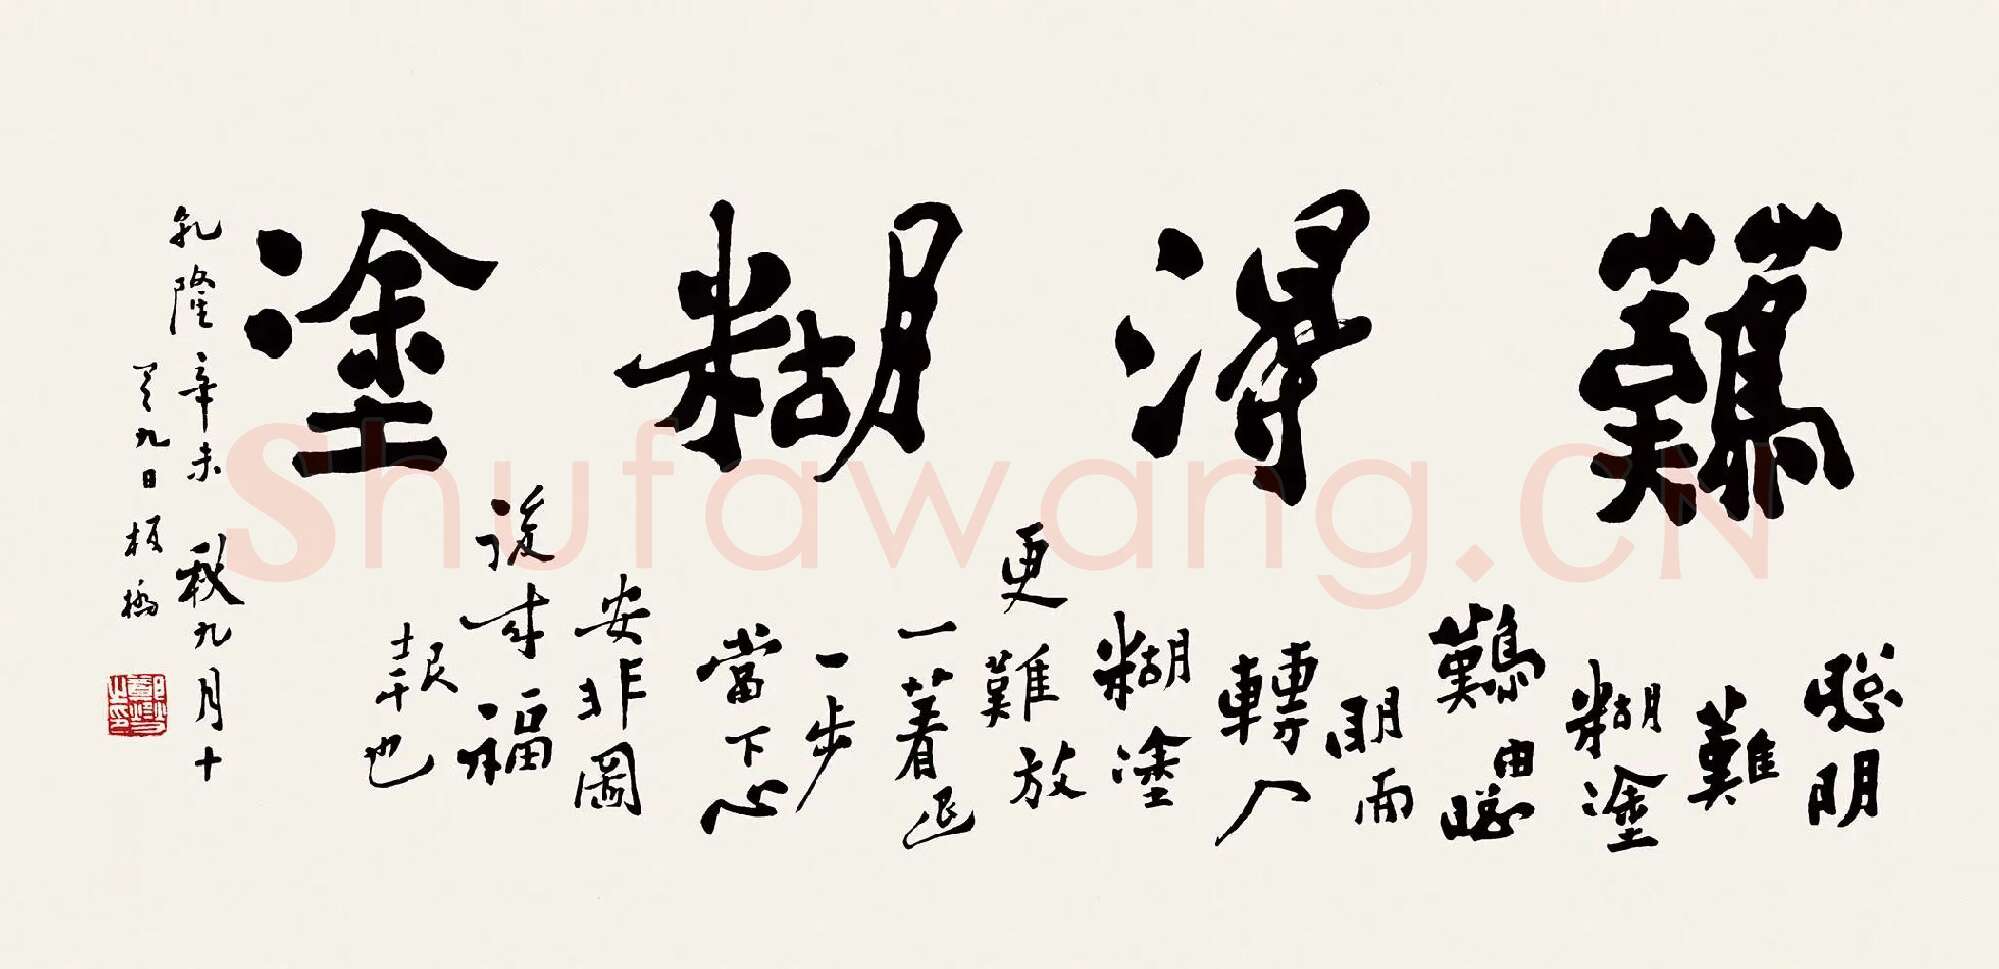 難得糊塗
聰明
難
糊塗
難由聰
明而
轉入
糊塗
更難放
一着退
一步
當下心
安非圖
後来福
報也
乾隆辛未秋九月十
有九日板橋
鄭燮之印
Shufawang.CN